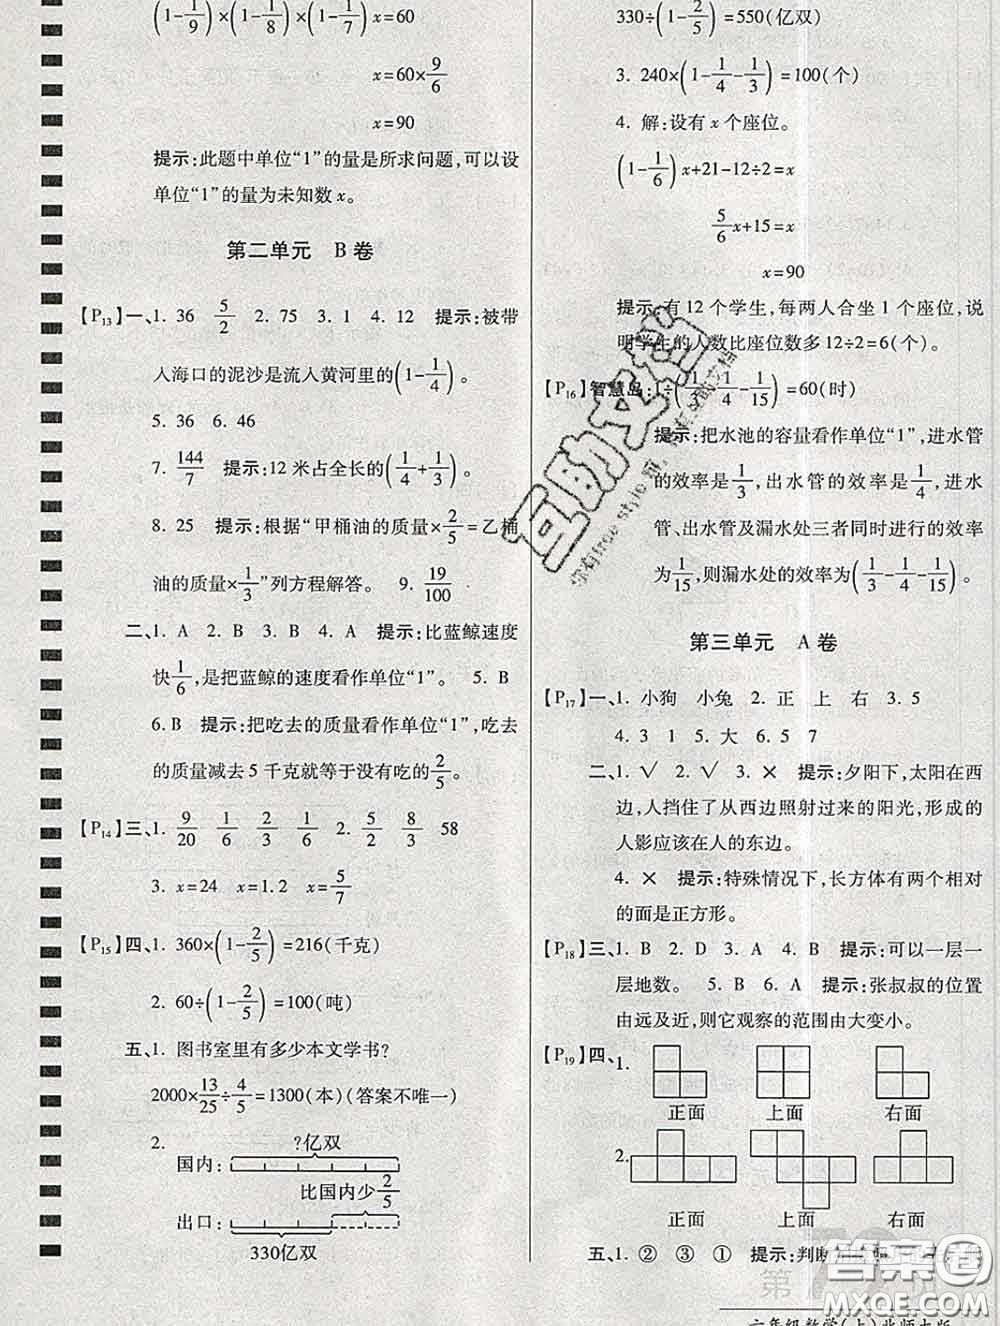 (1-1/9)×(1-1/8)×(1-1/7)x=60
x=60×9/6
x=90
提示:此题中单位“1”的量是所求问题,可以设
单位“1”的量为未知数 x。
第二单元 B 卷
【P13】一、1. 36 5/2 2. 75 3. 1 4. 12 提示:被带
人海口的泥沙是流人黄河里的(1-1/4)。
5. 36 6. 46
7. 144/7 提示:12 米占全长的(1/4+1/3)。
8. 25 提示:根据“甲桶油的质量×2/5=乙桶
油的质量×1/3”列方程解答。 9. 19/100
二、1. A 2. B 3. B 4. A 提示:比蓝鲸速度
快1/6,是把蓝鲸的速度看作单位“1”。 5. B
6. B 提示:把吃去的质量看作单位“1”,吃去
的质量减去 5 千克就等于没有吃的2/5。
【P14】三、1. 9/20 1/6 2/3 1/6 2. 5/2 8/3 58
3. x=24 x=1.2 x=5/7
【P15】四、1. 360×(1-2/5)=216(千克)
2. 60÷(1-2/5)=100(吨)
五、1. 图书室里有多少本文学书?
2000×13/25÷4/5=1300(本)(答案不唯一)
2.
?亿双
国内:
比国内少2/5
出口:
330亿双
330÷(1-2/5)=550(亿双)
3. 240×(1-1/4-1/3)=100(个)
4. 解:设有 x 个座位。
(1-1/6)x+21-12÷2=x
5/6x+15=x
x=90
提示:有 12 个学生,每两人合坐 1 个座位,说
明学生的人数比座位数多 12÷2=6(个)。
【P16】智慧岛:1÷(1/3-1/4-1/15)=60(时)
提示:把水池的容量看作单位“1”,进水管
的效率是1/3,出水管的效率是1/4,进水
管、出水管及漏水处三者同时进行的效率
为1/15,则漏水处的效率为(1/3-1/4-1/15)。
第三单元 A 卷
【P17】一、1. 小狗 小兔 2. 正 上 右 3. 5
4. 3 1 5. 大 6. 5 7
二、1. ✓ 2. ✓ 3. × 提示:夕阳下,太阳在西
边,人挡住了从西边照射过来的阳光,形成的
人影应该在人的东边。
4. × 提示:特殊情况下,长方体有两个相对
的面是正方形。
【P18】三、1. B 2. D 3. A 4. B 提示:可以一层一
层地数。 5. B 6. A 提示:张叔叔的位置
由远及近,则它观察的范围由大变小。
【P19】四、1.
正面 上面 右面
2.
正面 上面 右面
五、1. ② ③ ① 提示:判断
第
六年级数学(上)北师大版
互助文档
你有free style吗,
答案圈
MXQE.COM